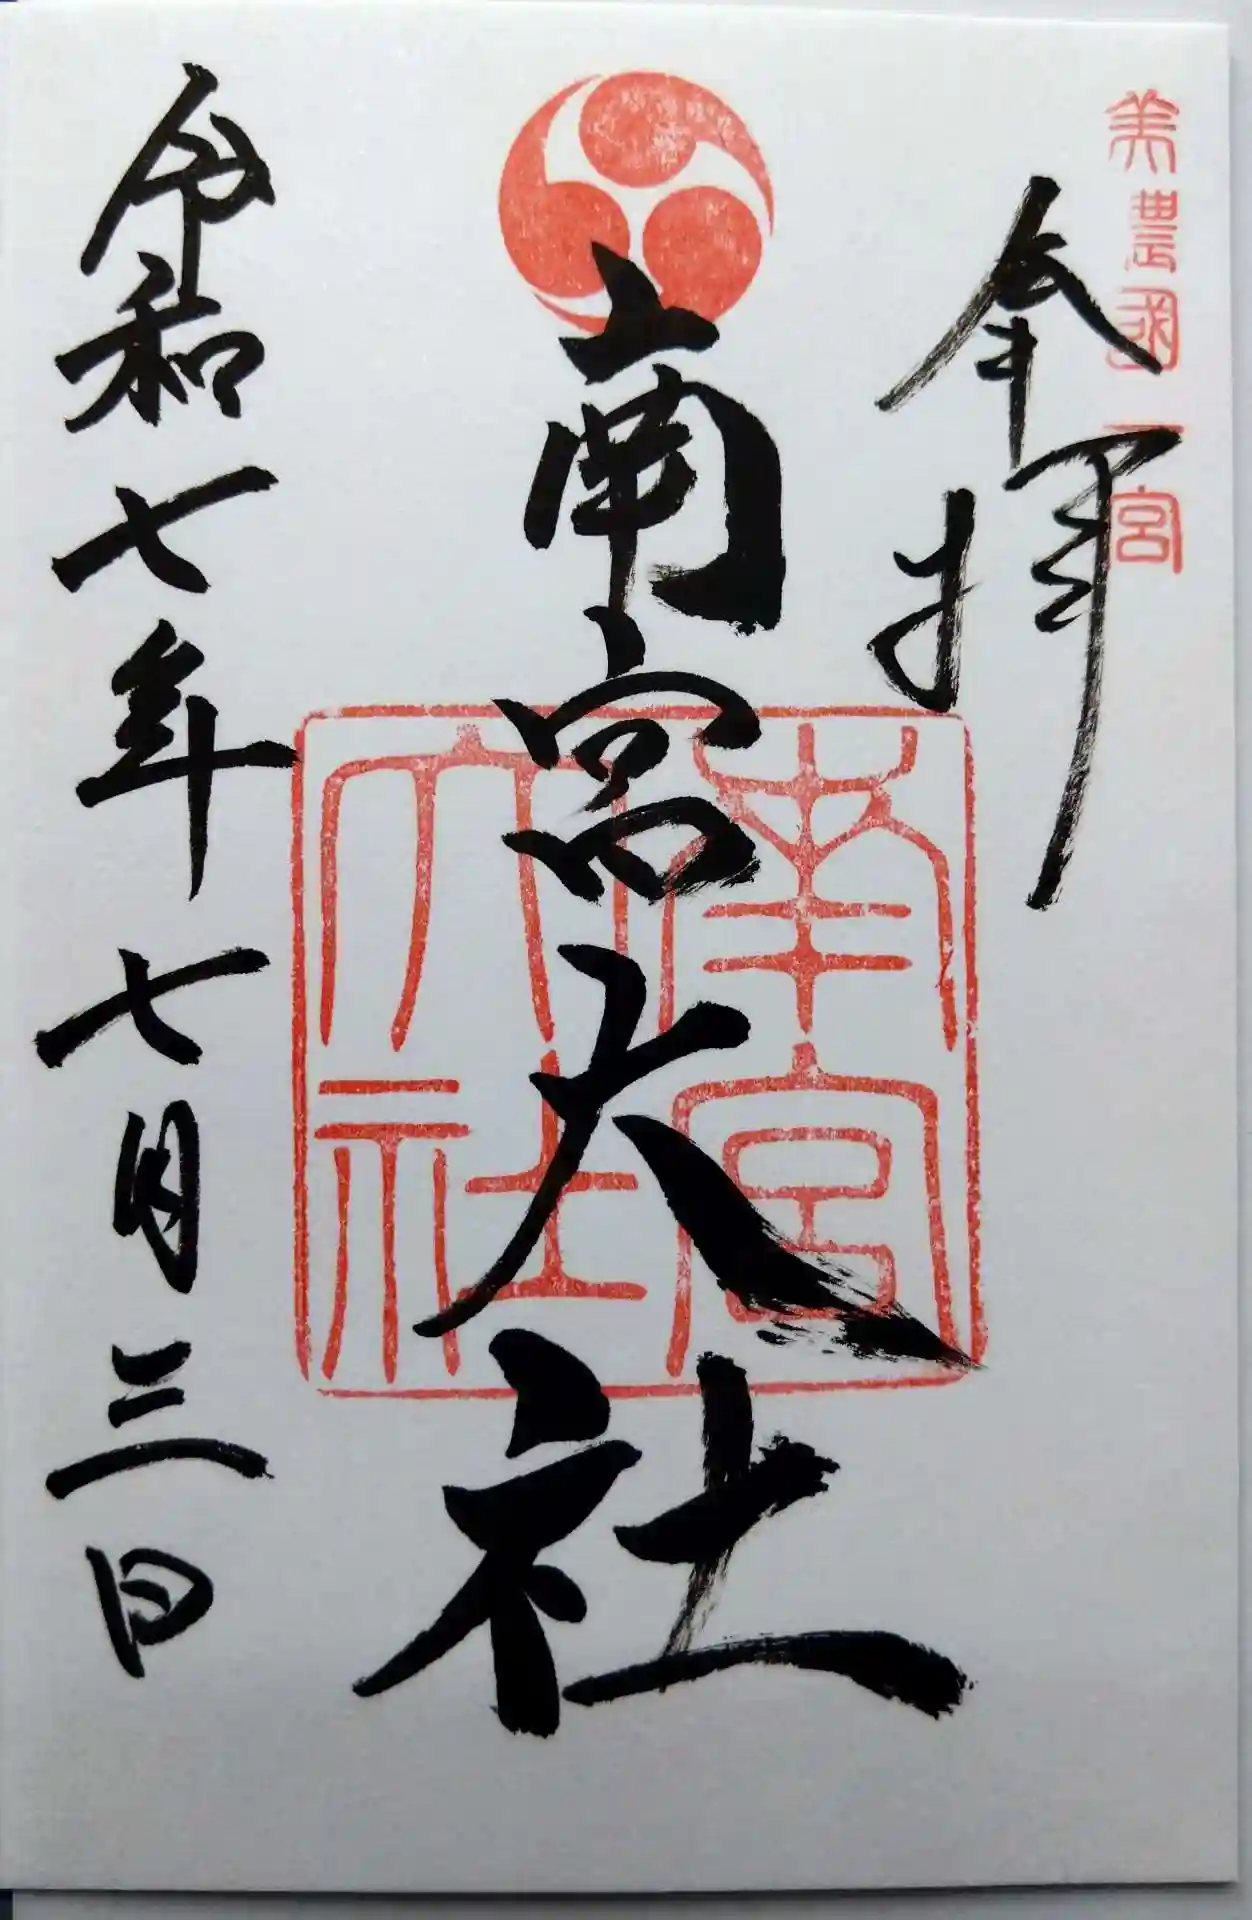 美濃國一宮
奉拝
南宮大社
南宮
大社
令和七年七月三日